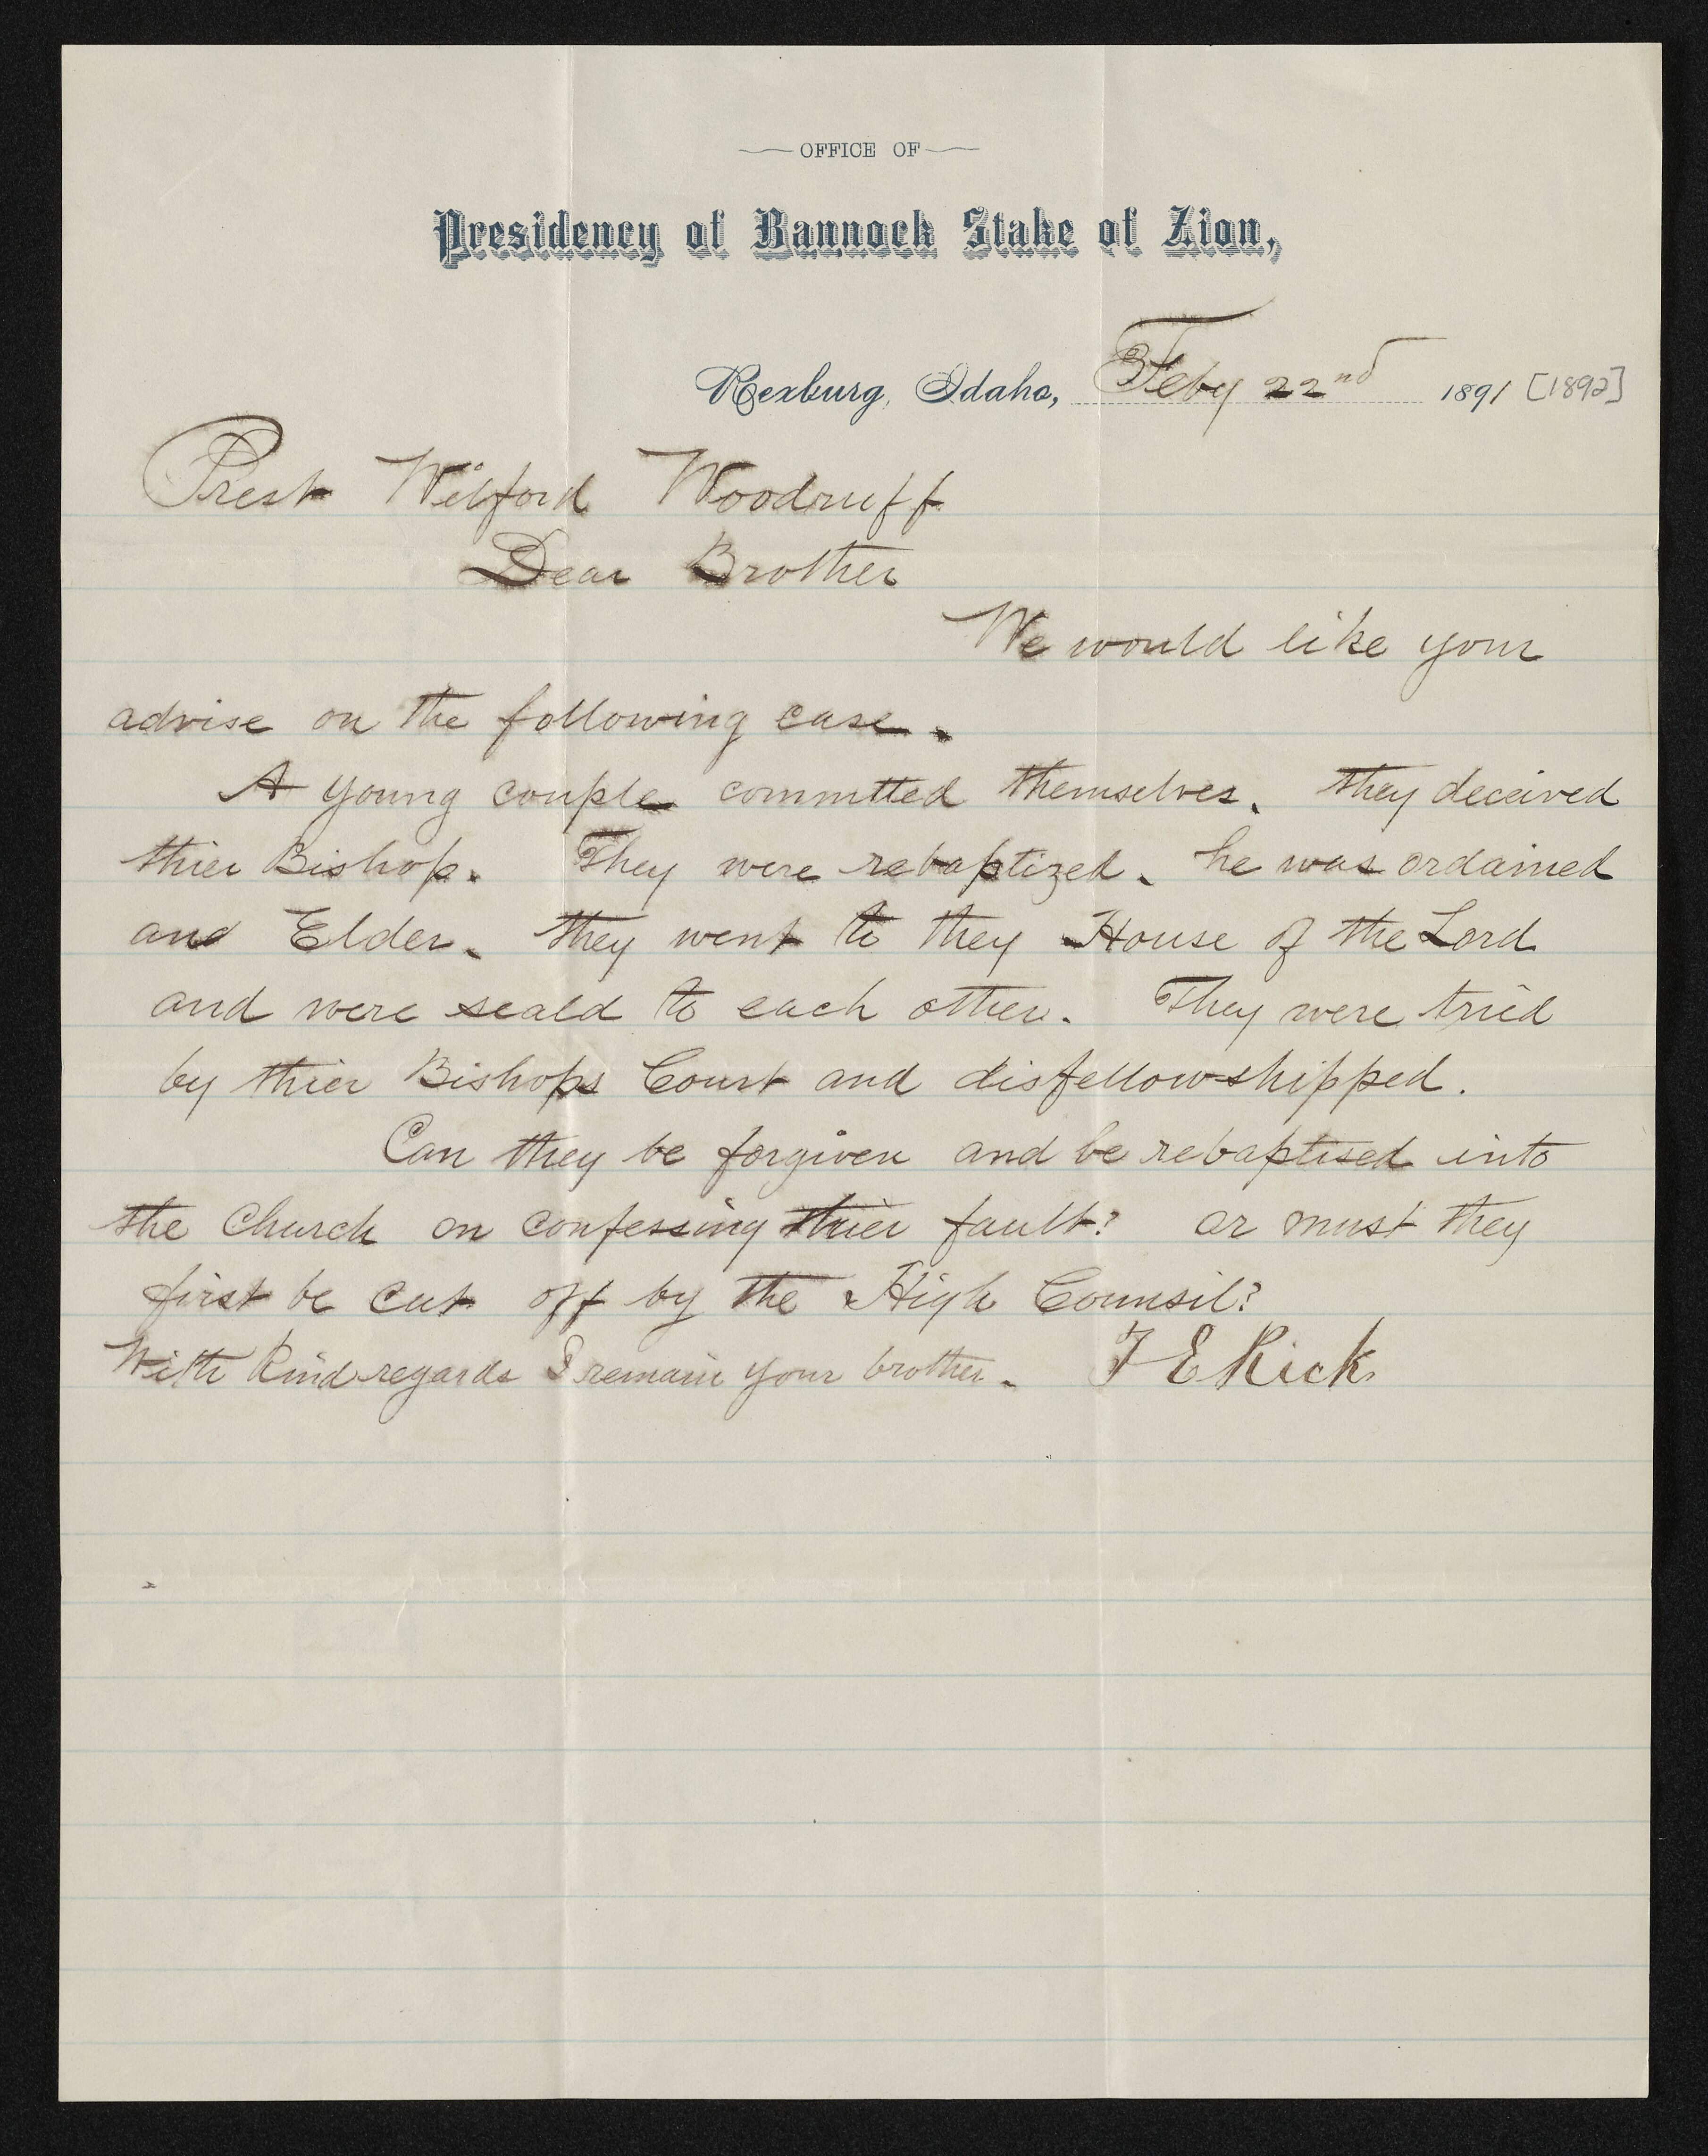 OFFICE OF
Presidency of Bannock Stake of Zion,
Rexburg, Idaho, Feby 22nd 1891 [1892]
Prest Wilford Woodruff
Dear Brother
We would like your
advise on the following case.
A young couple committed themselves. they deceived
thier Bishop. They were rebaptized. he was ordained
and Elder. they went to they House of the Lord
and were seald to each other. They were tried
by thier Bishops Court and disfellowshipped.
Can they be forgiven and be rebaptised into
the Church on confessing thier fault? or must they
first be cut off by the High Counsil?
With Kind regards I remain your brother. T E Rick